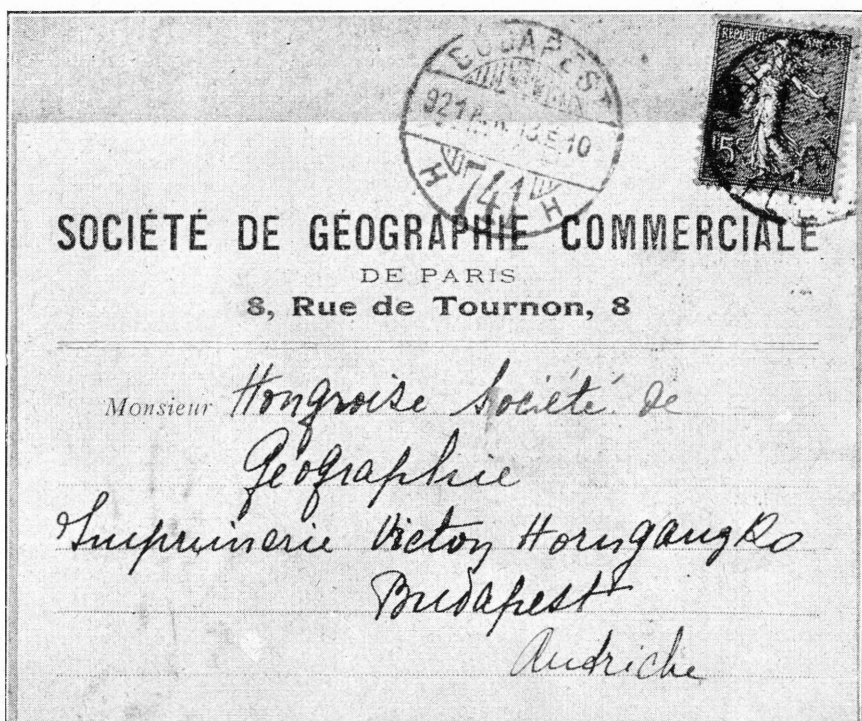 BUDAPEST
741
H H
RÉPUBLIQUE FRANÇAISE
15c
SOCIÉTÉ DE GÉOGRAPHIE COMMERCIALE
DE PARIS
8, Rue de Tournon, 8
Monsieur Hongroise Société de
Géographie
Imprimerie Victor Hornyanszky
Budapest
Autriche